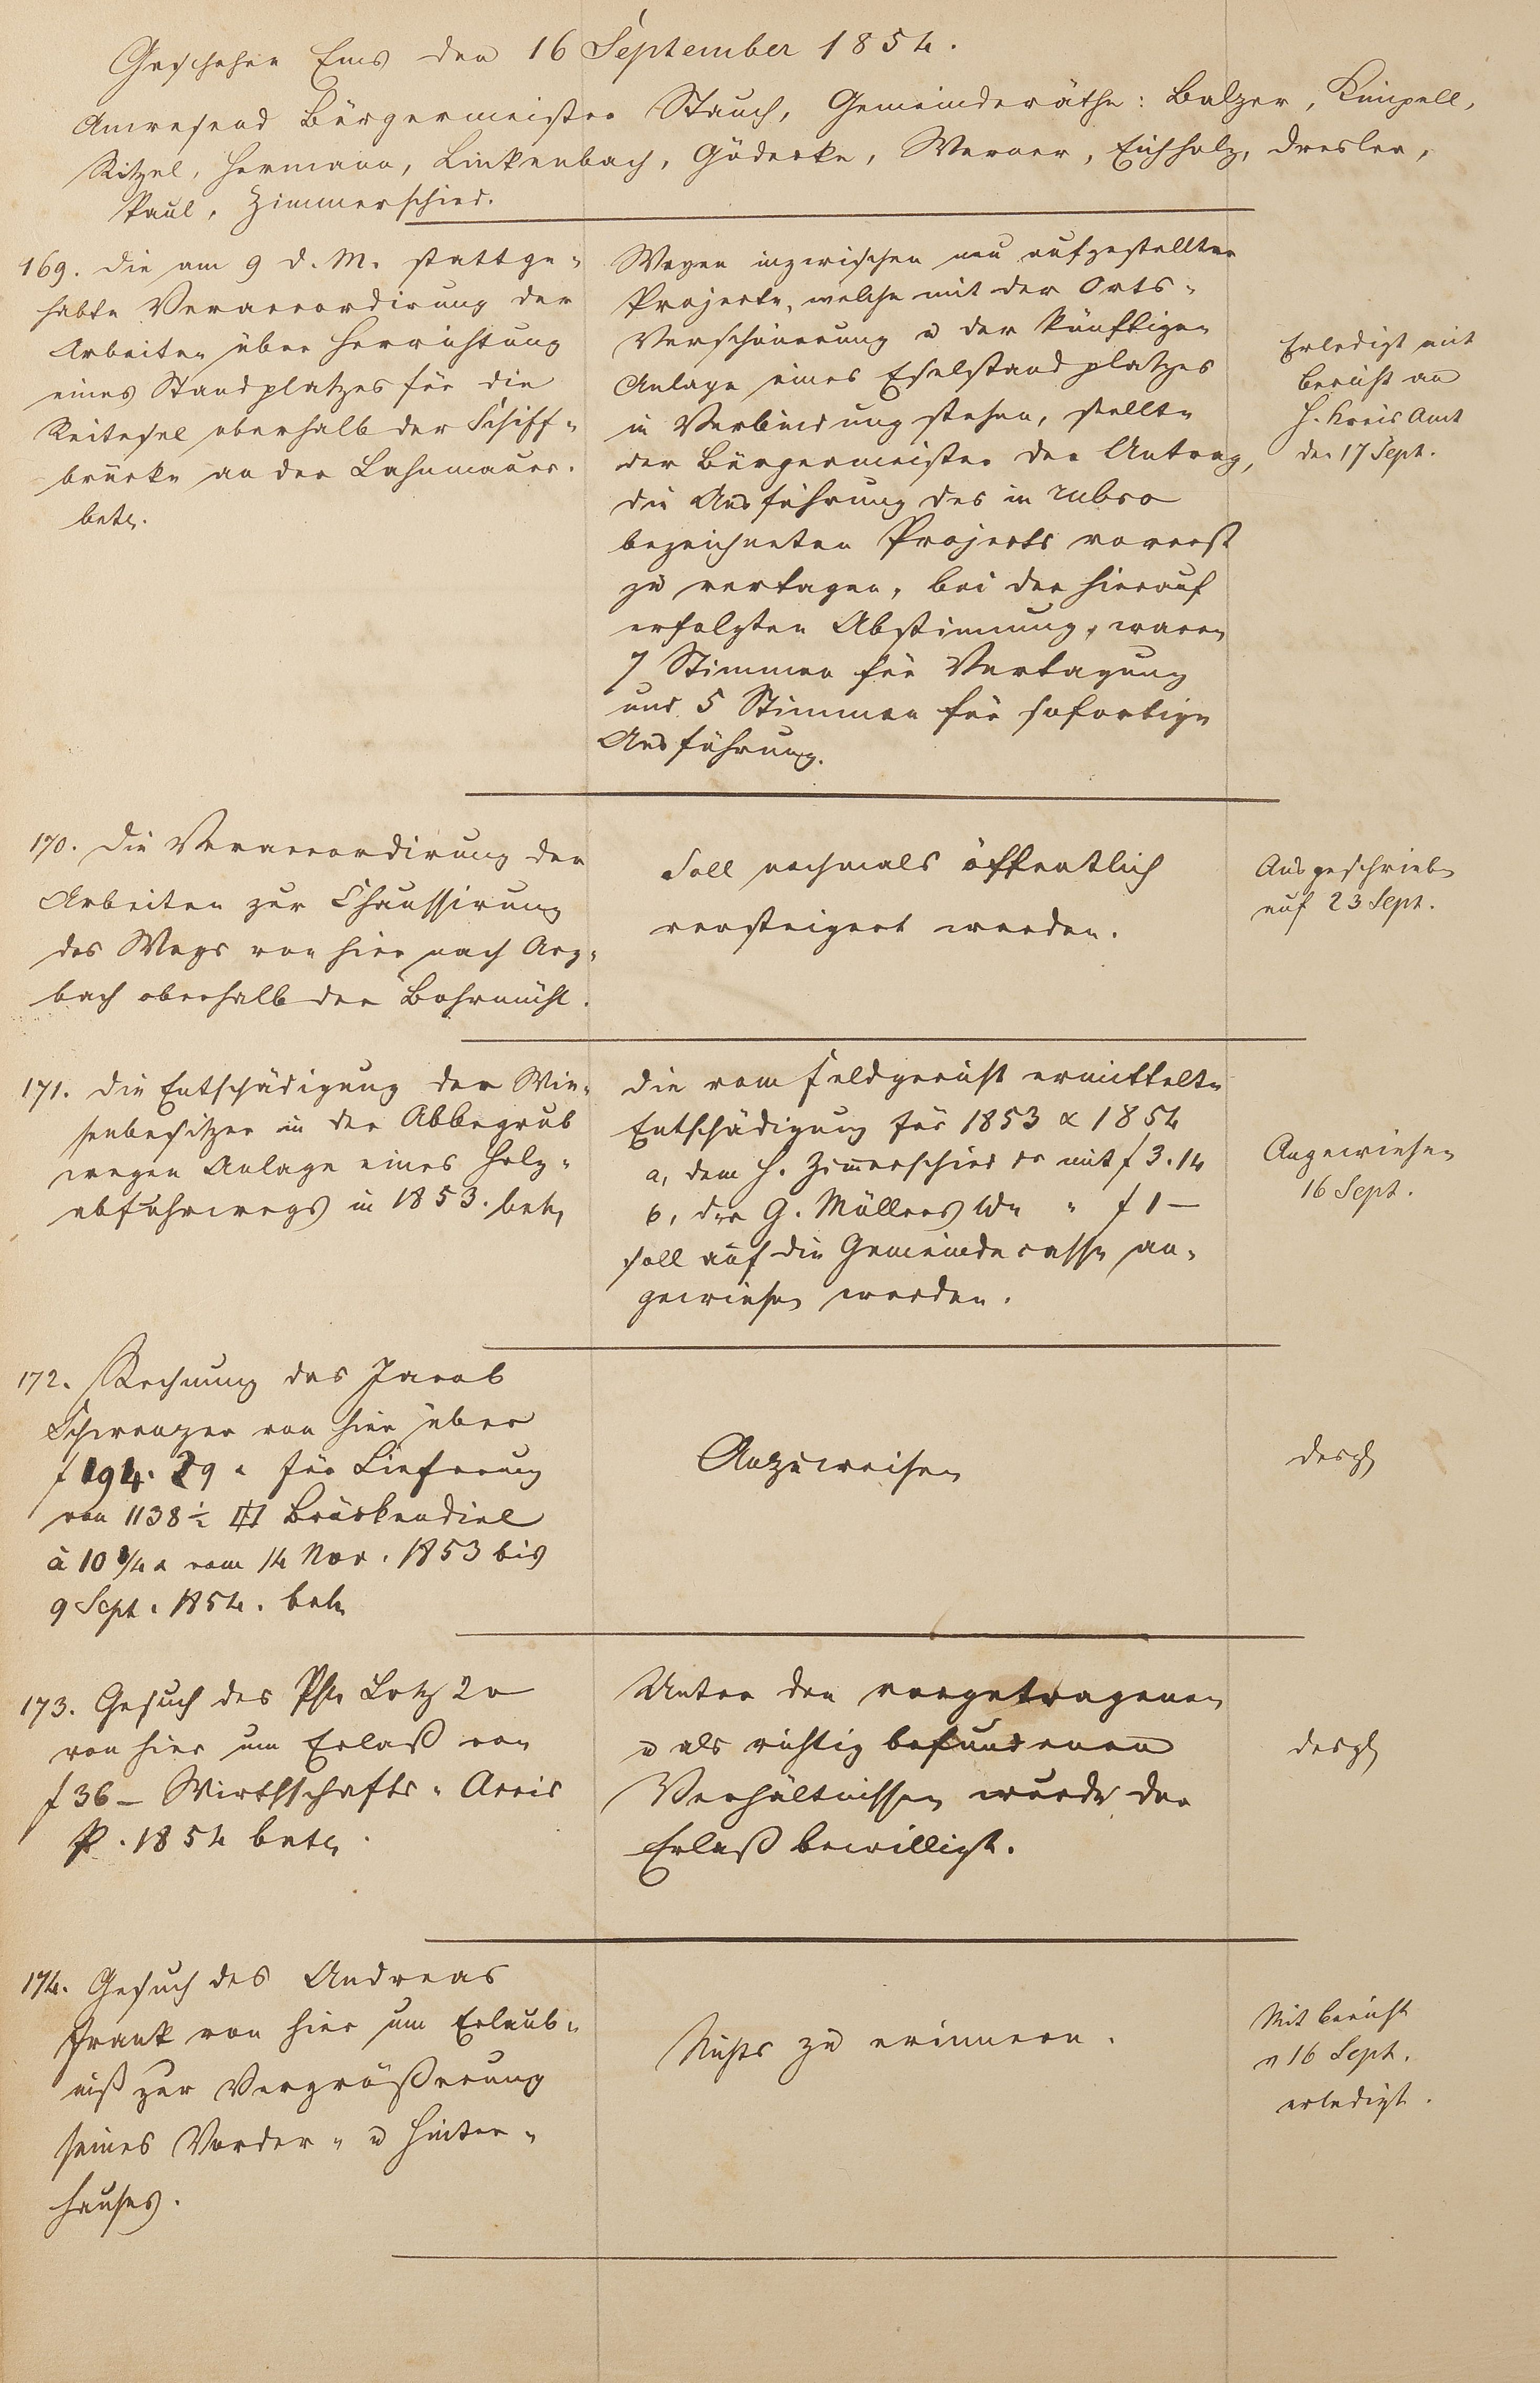 Geschehen Ems den 16 September 1854.
Anwesend Bürgermeister Stauch, Gemeinderäthe: Balzer, Kimpell,
Ritzel, Hermann, Linkenbach, Gödecke, Werner, Eichholz, Dresler,
Paul, Zimmerschied.
169. Die am 9 d. M. stattge-
habte Veraccordirung der
Arbeiten über Herrichtung
eines Standplatzes für die
Reitesel oberhalb der Schiff-
brücke an der Lahnmauer.
betr.
Wegen inzwischen neu aufgestellter
Projecte, welche mit der Orts-
Verschönerung u der künftigen
Anlage eines Eselstandplatzes
in Verbindung stehen, stellte
der Bürgermeister den Antrag,
die Ausführung des in rubro
bezeichneten Projects vorerst
zu vertagen, bei der hierauf
erfolgten Abstimmung, waren
7 Stimmen für Vertagung
und 5 Stimmen für sofortige
Ausführung.
Erledigt mit
Bericht an
H. Kreis Amt
den 17 Sept.
170. Die Veraccordirung der
Arbeiten zur Chaussirung
des Wegs von hier nach Arz-
bach oberhalb der Bohrmühl.
Soll nochmals öffentlich
versteigert werden.
Ausgeschrieben
auf 23 Sept.
171. Die Entschädigung der Wie-
senbesitzer in der Abbegrub
wegen Anlage eines Holz-
abfuhrwegs in 1853. betr
Die vom Feldgericht ermittelte
Entschädigung für 1853 & 1854
a, dem H. Zimmerschied mit f 3.14
b, der G. Müllers We " f 1 —
soll auf die Gemeindecasse an-
gewiesen werden.
Angewiesen
16 Sept.
172. Rechnung des Jacob
Schwenzer von hier über
f 194. 29 x für Lieferung
von 1138 ½ Brückendiel
à 10 ¼ x vom 14 Nov. 1853 bis
9 Sept. 1854. betr
Anzuweisen
desgl
173. Gesuch des Phi Lotz 2r
von hier um Erlaß von
f 36 — Wirthschafts-Accis
p. 1854 betr.
Unter den vorgetragenen
u als richtig befundenen
Verhältnissen wurde der
Erlaß bewilligt.
desgl
174. Gesuch des Andreas
Frank von hier um Erlaub-
niß zur Vergrößerung
seines Vorder- u Hinter-
hauses.
Nichts zu erinnern.
Mit Bericht
v 16 Sept.
erledigt.